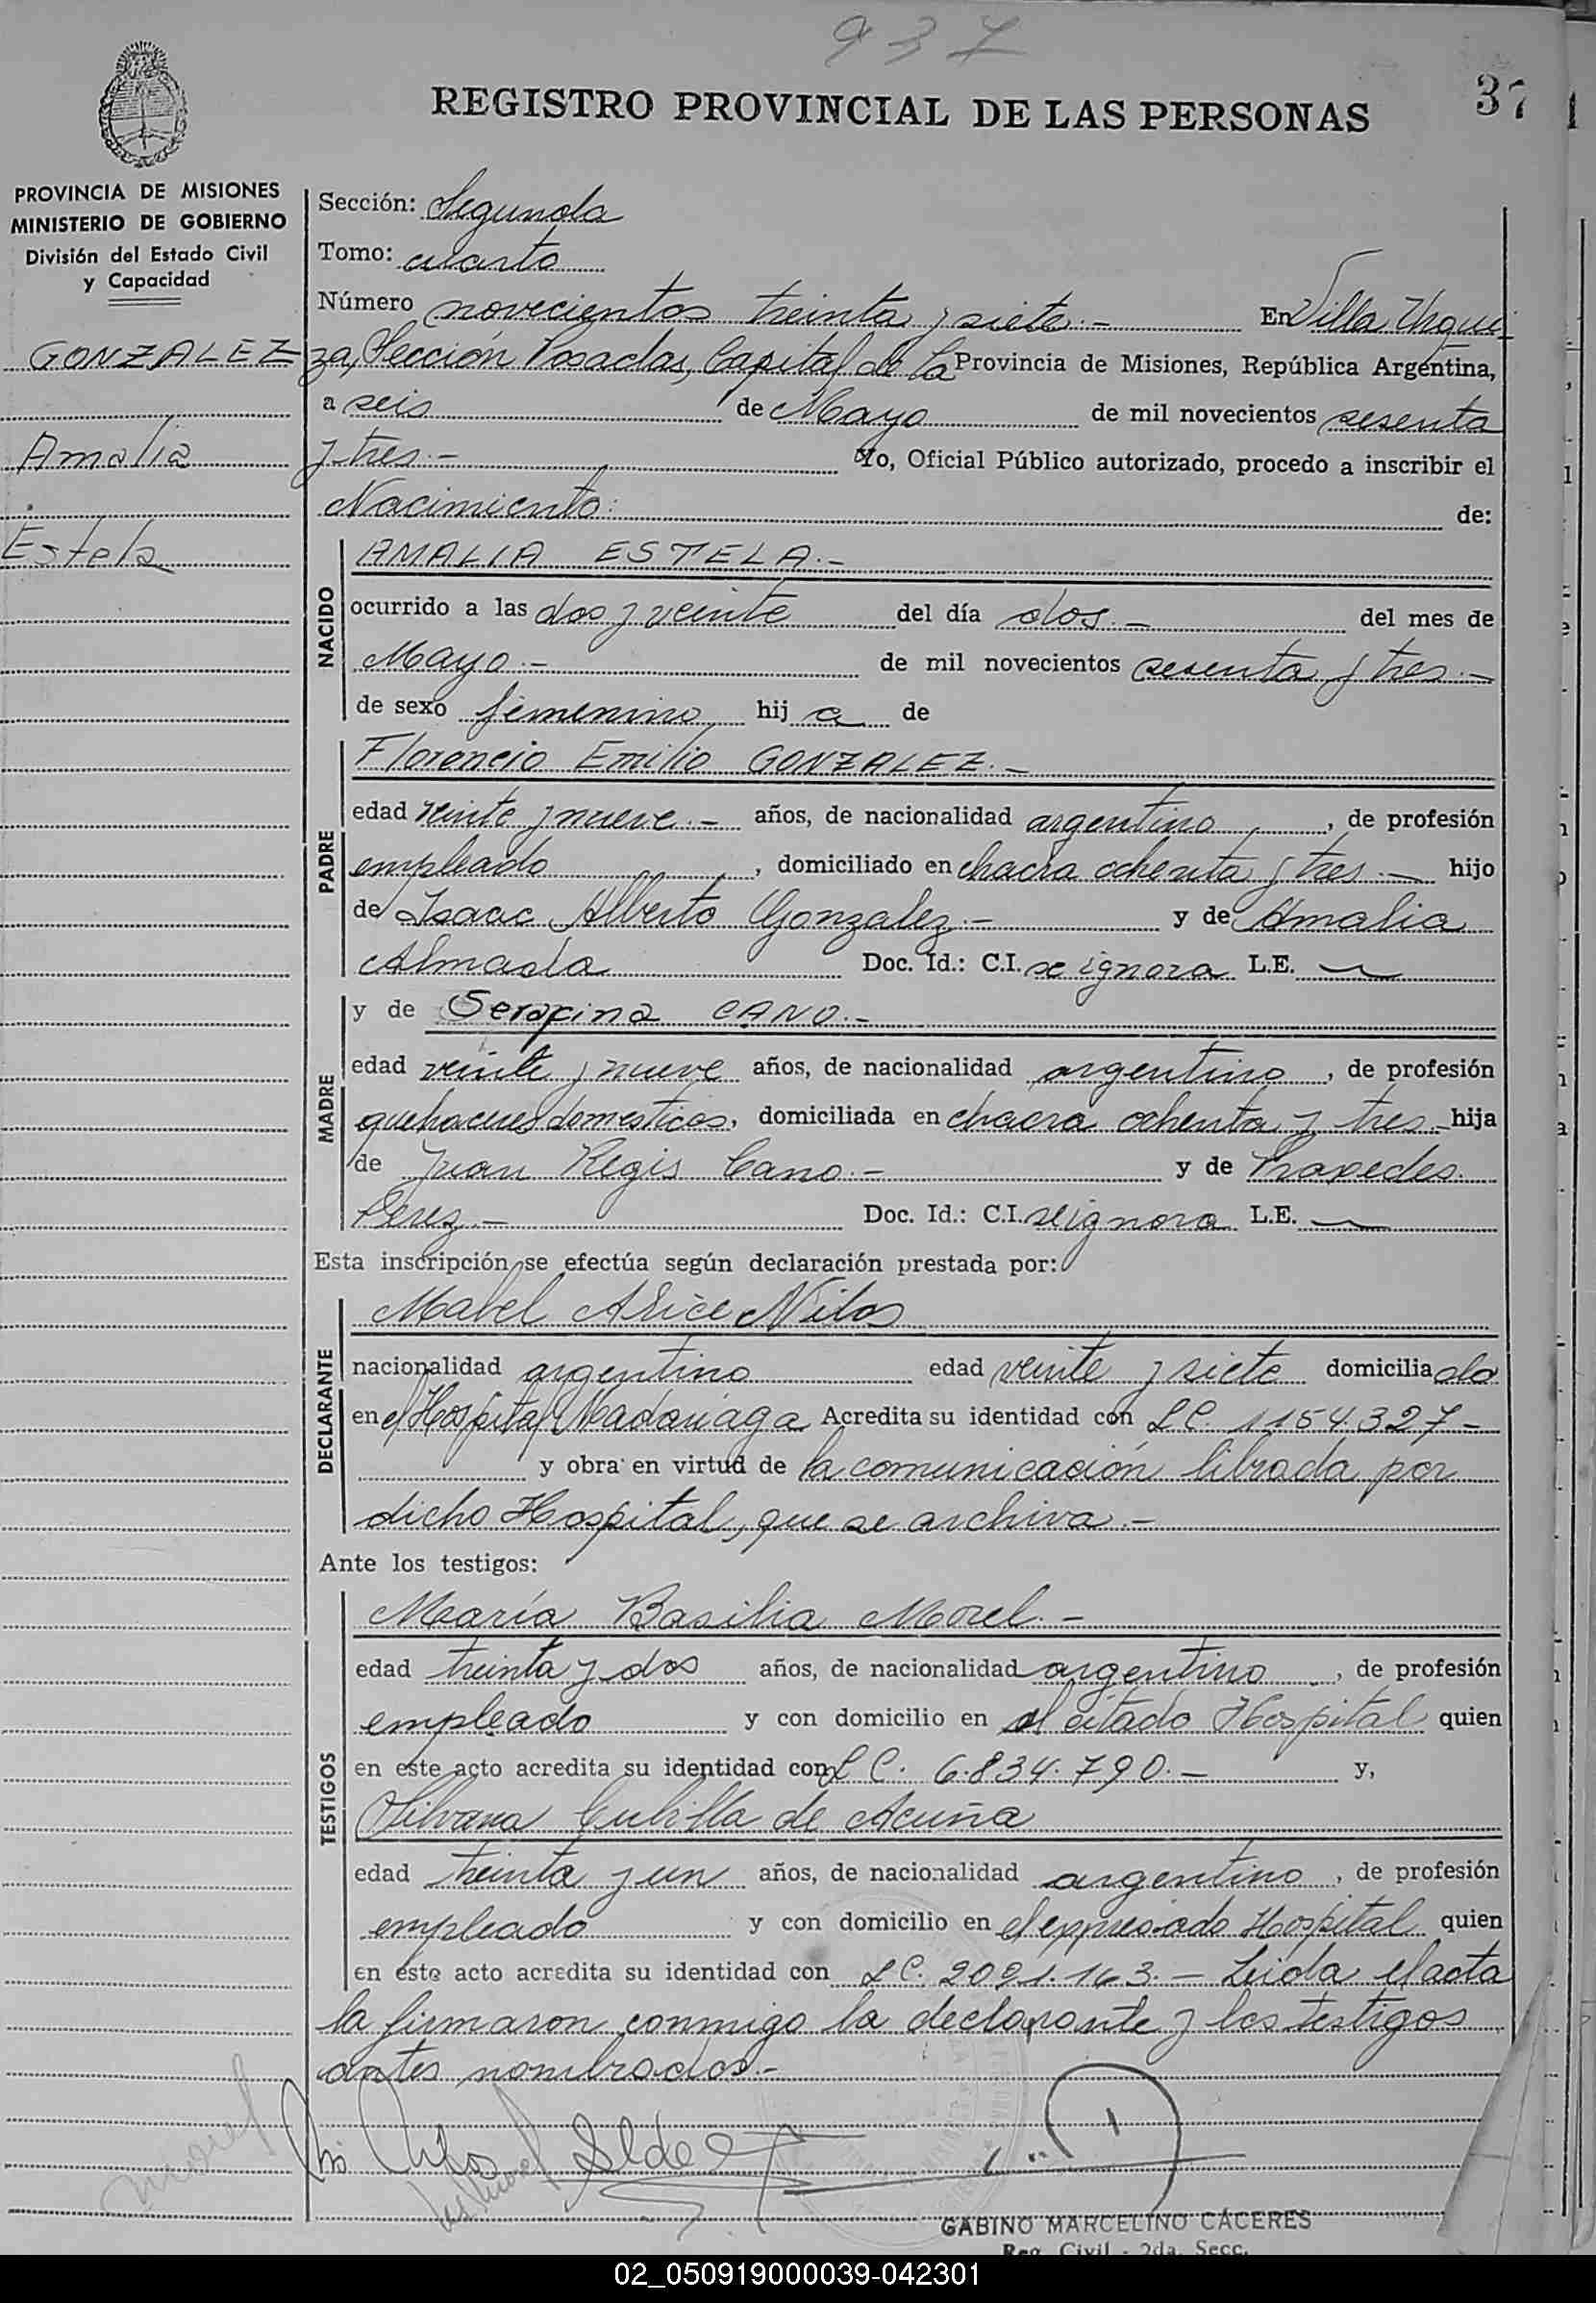 937
REGISTRO PROVINCIAL DE LAS PERSONAS
37
PROVINCIA DE MISIONES
MINISTERIO DE GOBIERNO
División del Estado Civil
y Capacidad
GONZALEZ
Amalia
Estela
Sección: Segunda
Tomo: cuarto
Número novecientos treinta y siete.- En Villa Urqui
za, Sección Posadas, Capital de la Provincia de Misiones, República Argentina,
a seis de Mayo de mil novecientos sesenta
y tres.- Yo, Oficial Público autorizado, procedo a inscribir el
Nacimiento: de:
NACIDO
AMALIA ESTELA.-
ocurrido a las dos y veinte del día dos.- del mes de
Mayo.- de mil novecientos sesenta y tres.-
de sexo femenino hij a de
PADRE
Florencio Emilio GONZALEZ.-
edad veinte y nueve.- años, de nacionalidad argentino, de profesión
empleado, domiciliado en chacra ochenta y tres.- hijo
de Isaac Alberto Gonzalez.- y de Amalia
Almada Doc. Id.: C.I. se ignora L.E.
MADRE
y de Serafina CANO.-
edad veinte y nueve años, de nacionalidad argentina, de profesión
quehaceres domesticos, domiciliada en chacra ochenta y tres.- hija
de Juan Regis Cano.- y de
Perez.- Doc. Id.: C.I. se ignora L.E.
Esta inscripción se efectúa según declaración prestada por:
DECLARANTE
Mabel Alice Nilos
nacionalidad argentina edad veinte y siete domicilia da
en el Hospital Madariaga Acredita su identidad con L.C. 1154.327-
y obra en virtud de la comunicación librada por
dicho Hospital, que se archiva.-
Ante los testigos:
TESTIGOS
María Basilia Morel.-
edad treinta y dos años, de nacionalidad argentino, de profesión
empleado y con domicilio en el citado Hospital quien
en este acto acredita su identidad con L C. 6.834.790.- y,
Silvana de Acuña
edad treinta y un años, de nacionalidad argentino, de profesión
empleado y con domicilio en el expresado Hospital quien
en este acto acredita su identidad con L C. 2091.163.- Leida el acta
la firmaron conmigo la declarante y los testigos
antes nombrados.-
GABINO MARCELINO CACERES
Reg. Civil - 2da. Secc.
02_050919000039-042301